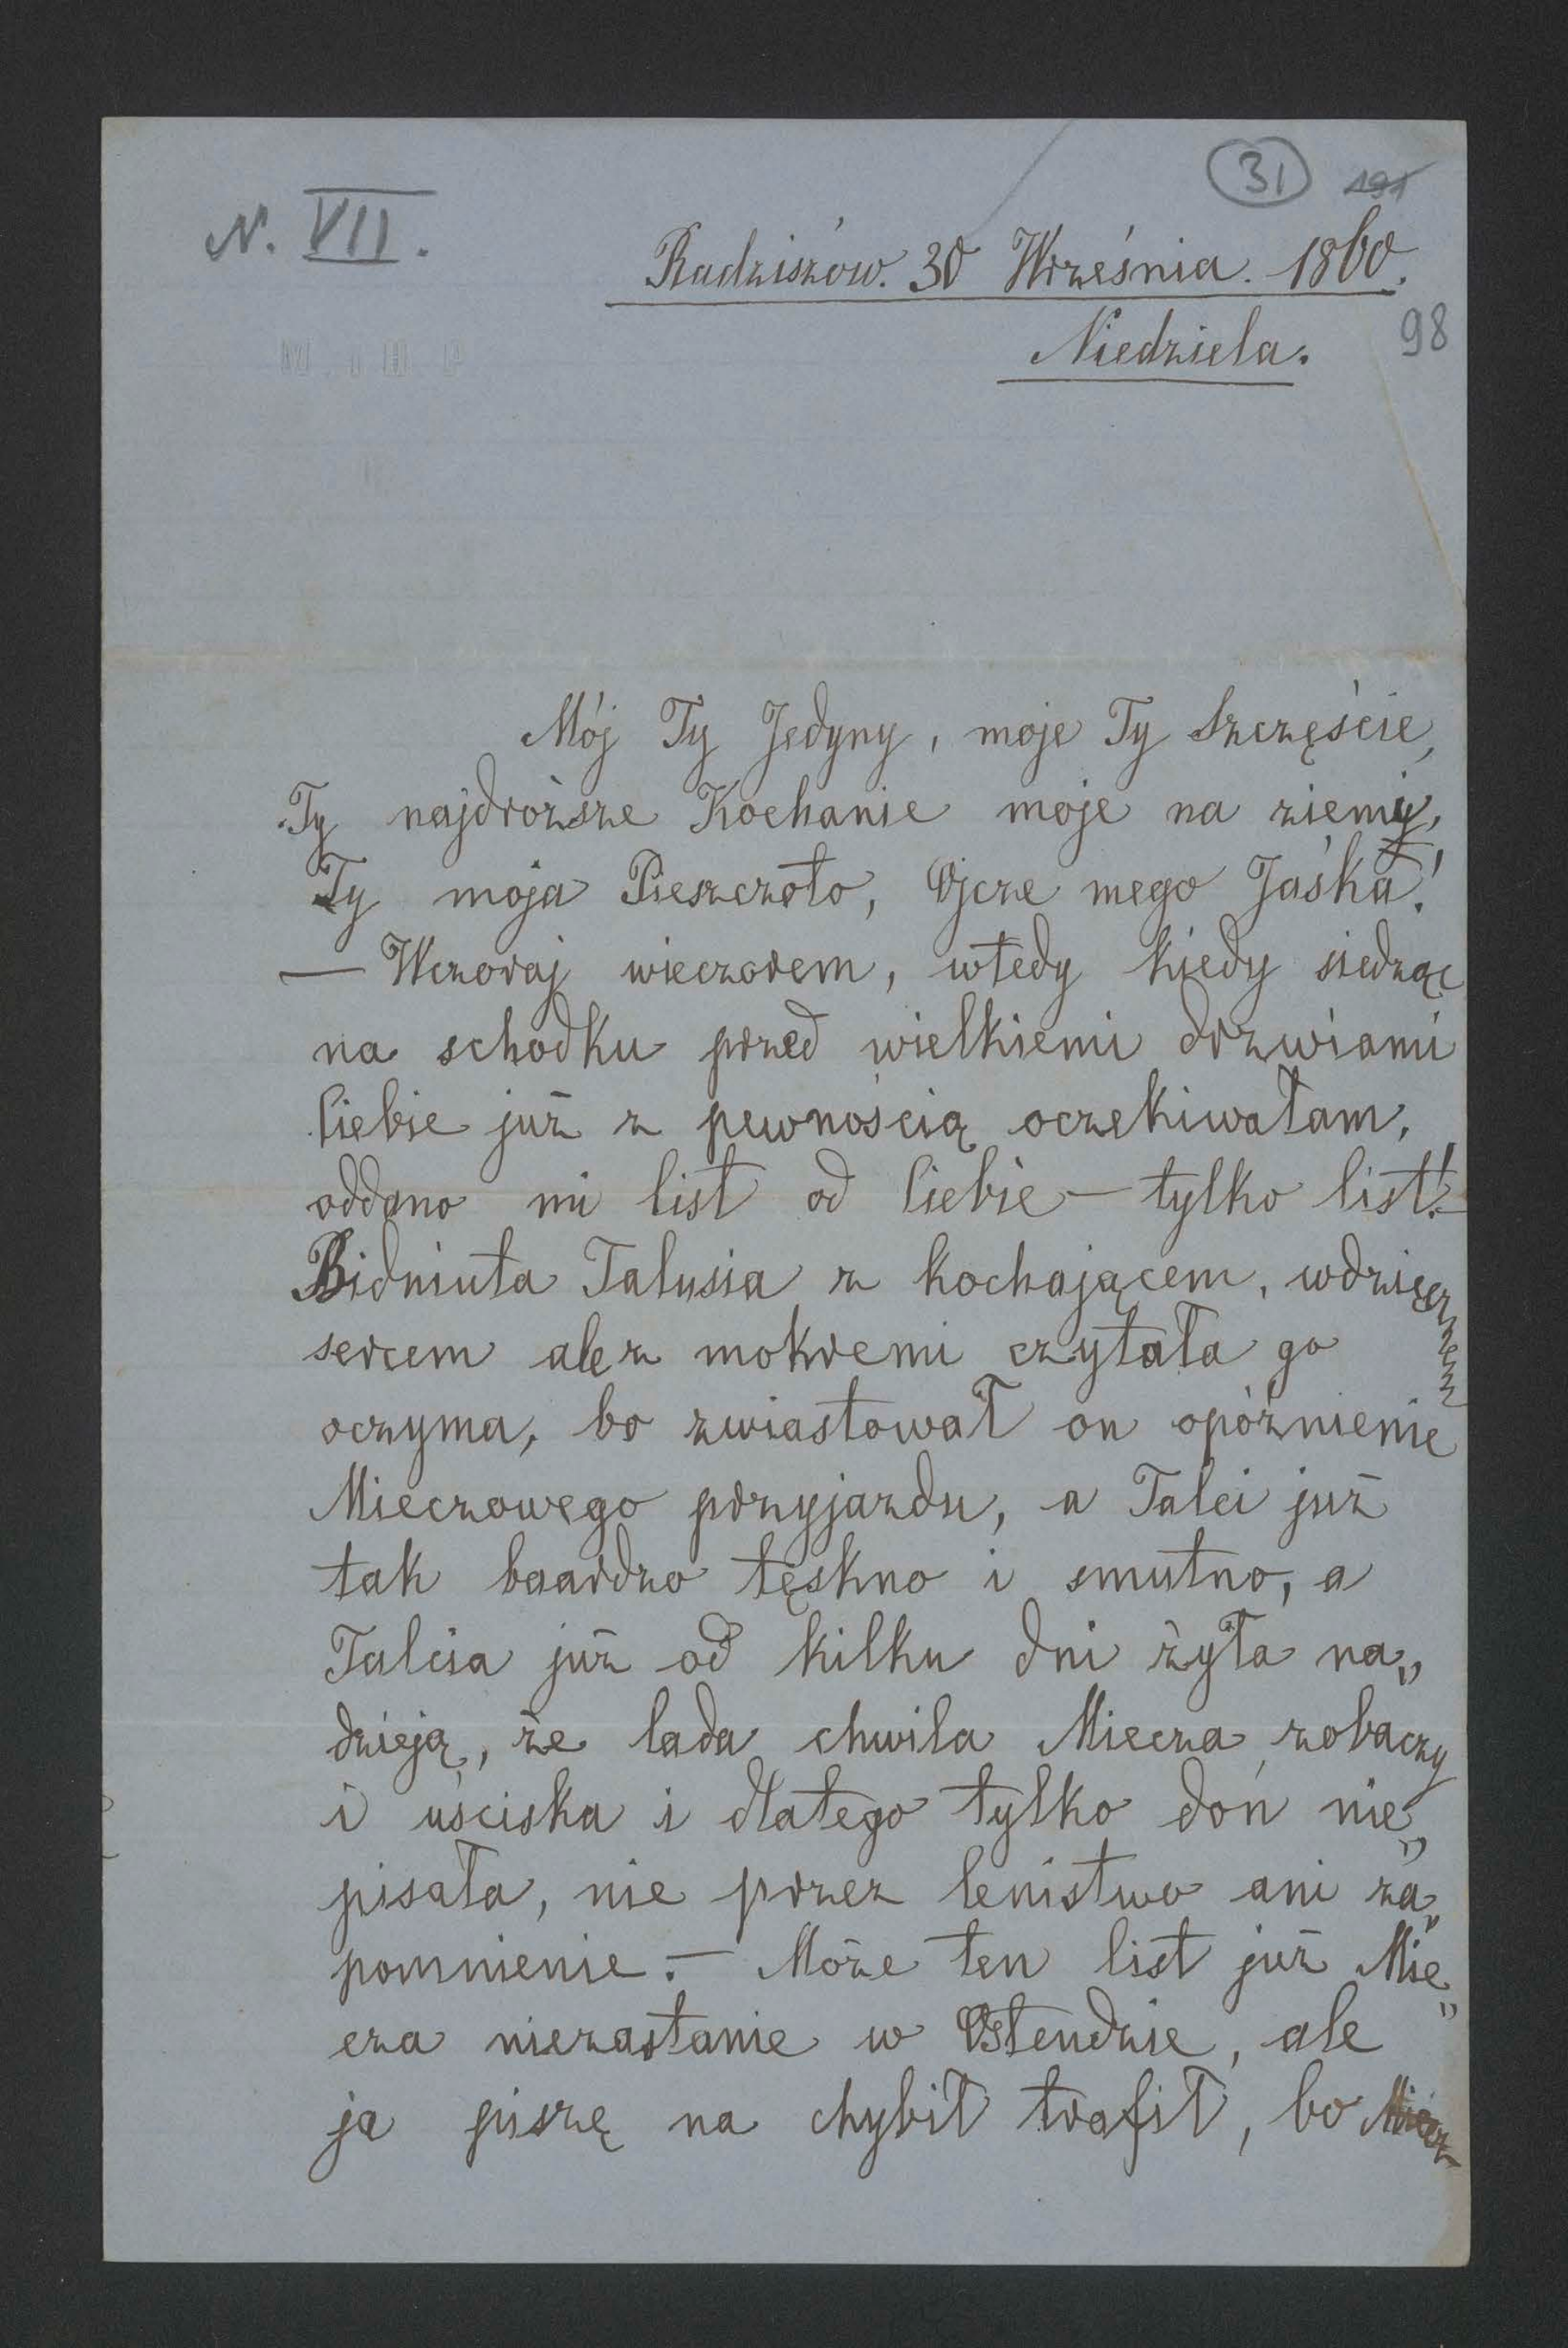 31 191
N. VII.
Radziszów. 30 Września. 1860.
Niedziela.
98
Mój Ty Jedyny, moje Ty Szczęście,
Ty najdroższe Kochanie moje na ziemi,
Ty moja Pieszczoto, Ojcze mego Jaśka!
— Wczoraj wieczorem, wtedy kiedy siedząc
na schodku przed wielkiemi drzwiami
Ciebie już z pewnością oczekiwałam,
oddano mi list od Ciebie — tylko list! —
Bidniuta Talusia z kochającem, wdzięcznem
sercem ale z mokremi czytała go
oczyma, bo zwiastował on opóźnienie
Mieczowego przyjazdu, a Talci już
tak baardzo tęskno i smutno, a
Talcia już od kilku dni żyła na„
dzieją, że lada chwila Miecza zobaczy
i uściska i dlatego tylko doń nie„
pisała, nie przez lenistwo ani za„
pomnienie. — Może ten list już Mie„
cza niezastanie w Ostendzie, ale
ja piszę na chybił trafił, bo Miecz